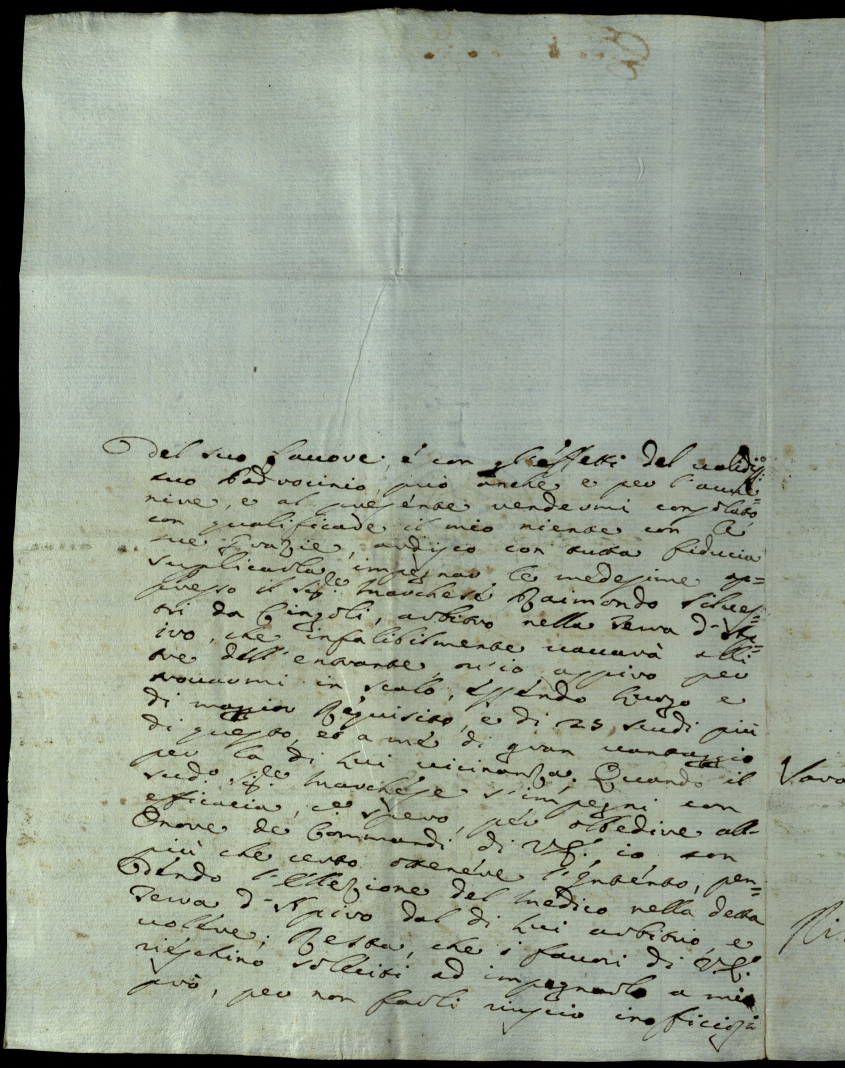 Del suo favore, é con gl'éffetti del validiss:º
suo Padrocinio può anche e per l'avve=
nire, e al presénte rendermi consolato
con qualificade il mio niente con le
sue Grazie, ardisco con tutta fiducia
supplicarla, impégnar le medesime ap=
presso il Sig:re Marchese Raimondo Silves=
tri da Cingoli, arbitro nella Terra d'Sta=
ivo, che infalibilmente vacarà alli
tre dell'entrante ov'io aspiro per
trovarmi in scalo, Esséndo luogo e
di maggior Réquisito, e di 25 scudi più
di questo, et a mé di gran vantaggio
per la di lui vicinanza. Quando il
sud:º Sig:re Marchése s'impegni con
efficacia, ce spero, pér obbedire all'
Onore de Commandi di VS:, io, son
più che certo ottenére l'Inténto, pen=
Déndo l'Elezione del Medico nella detta
Terra d'Apiro dal di lui arbitrio, e
volére; Resta, che i favori di VS:
riéschino solleciti ad impegnarlo a mio
prò, per non farli riuscir inofficiosi
Vara
Ri